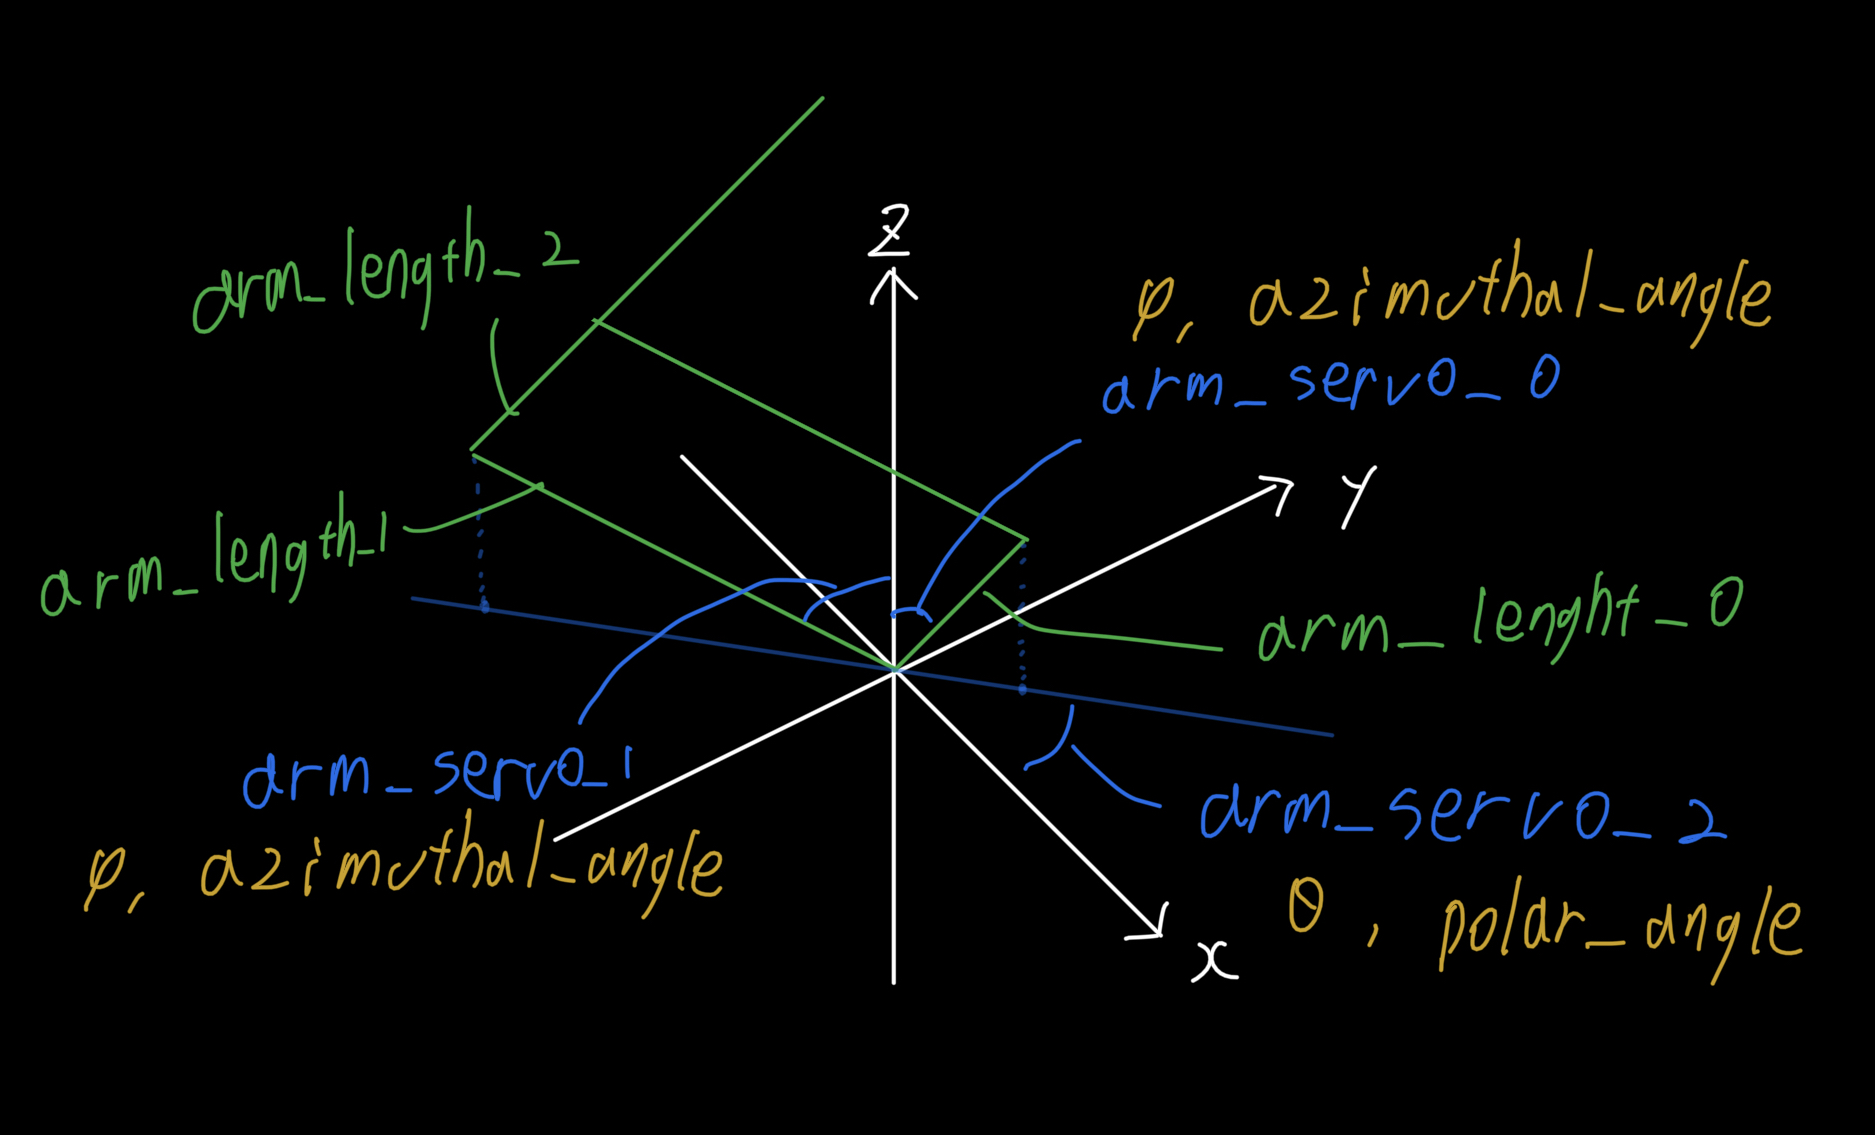 Z
arm_length_2
φ, azimuthal_angle
arm_servo_0
Y
arm_length_1
arm_lenght_0
arm_servo_1
φ, azimuthal_angle
arm_servo_2
θ, polar_angle
x